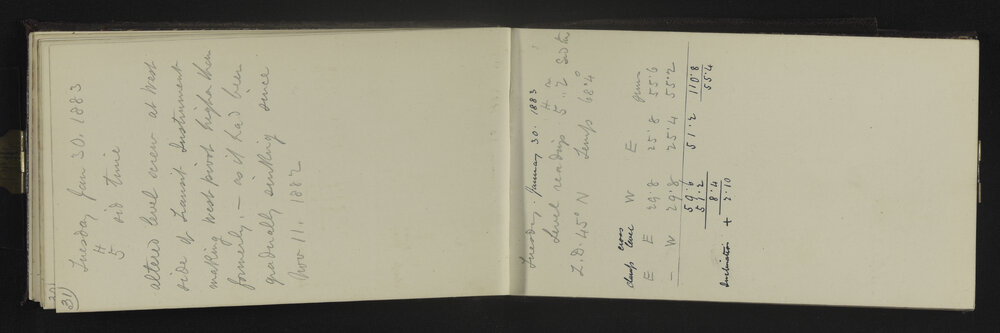 Tuesday Jan 30. 1883
H
5 sid time
altered level screw at West
side of Transit Instrument
making West pivot higher than
formerly, — as it had been
gradually sinking since
Nov 11. 1882
31
Tuesday. January 30. 1883
H m
Level readings 5..2 20th
L.D. 45° N Temp 68.4°
Clamp cross level W E
E E 29.8 25.8 55.6
— W 29.8 25.4 55.2
59.6 51.2 110.8
51.2 55.4
8.4
Inclination + 2.10